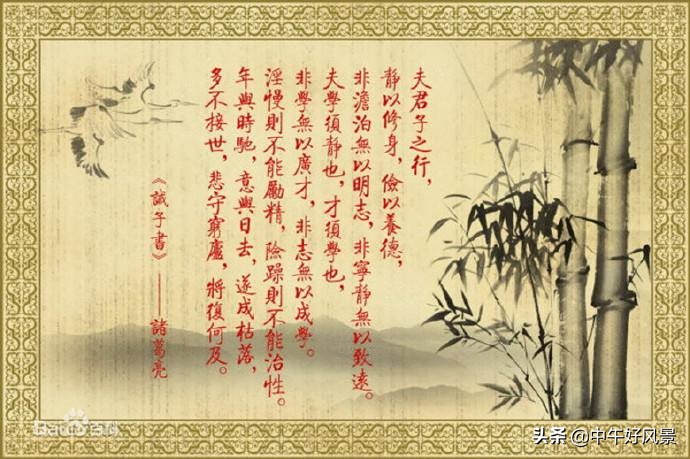 夫君子之行，
靜以修身，儉以養德，
非澹泊無以明志，非寧靜無以致遠。
夫學須靜也，才須學也，
非學無以廣才，非志無以成學。
淫慢則不能勵精，險躁則不能治性。
年與時馳，意與日去，遂成枯落，
多不接世，悲守窮廬，將復何及。
《誡子書》——諸葛亮
Baidu百科
头条 @中午好风景